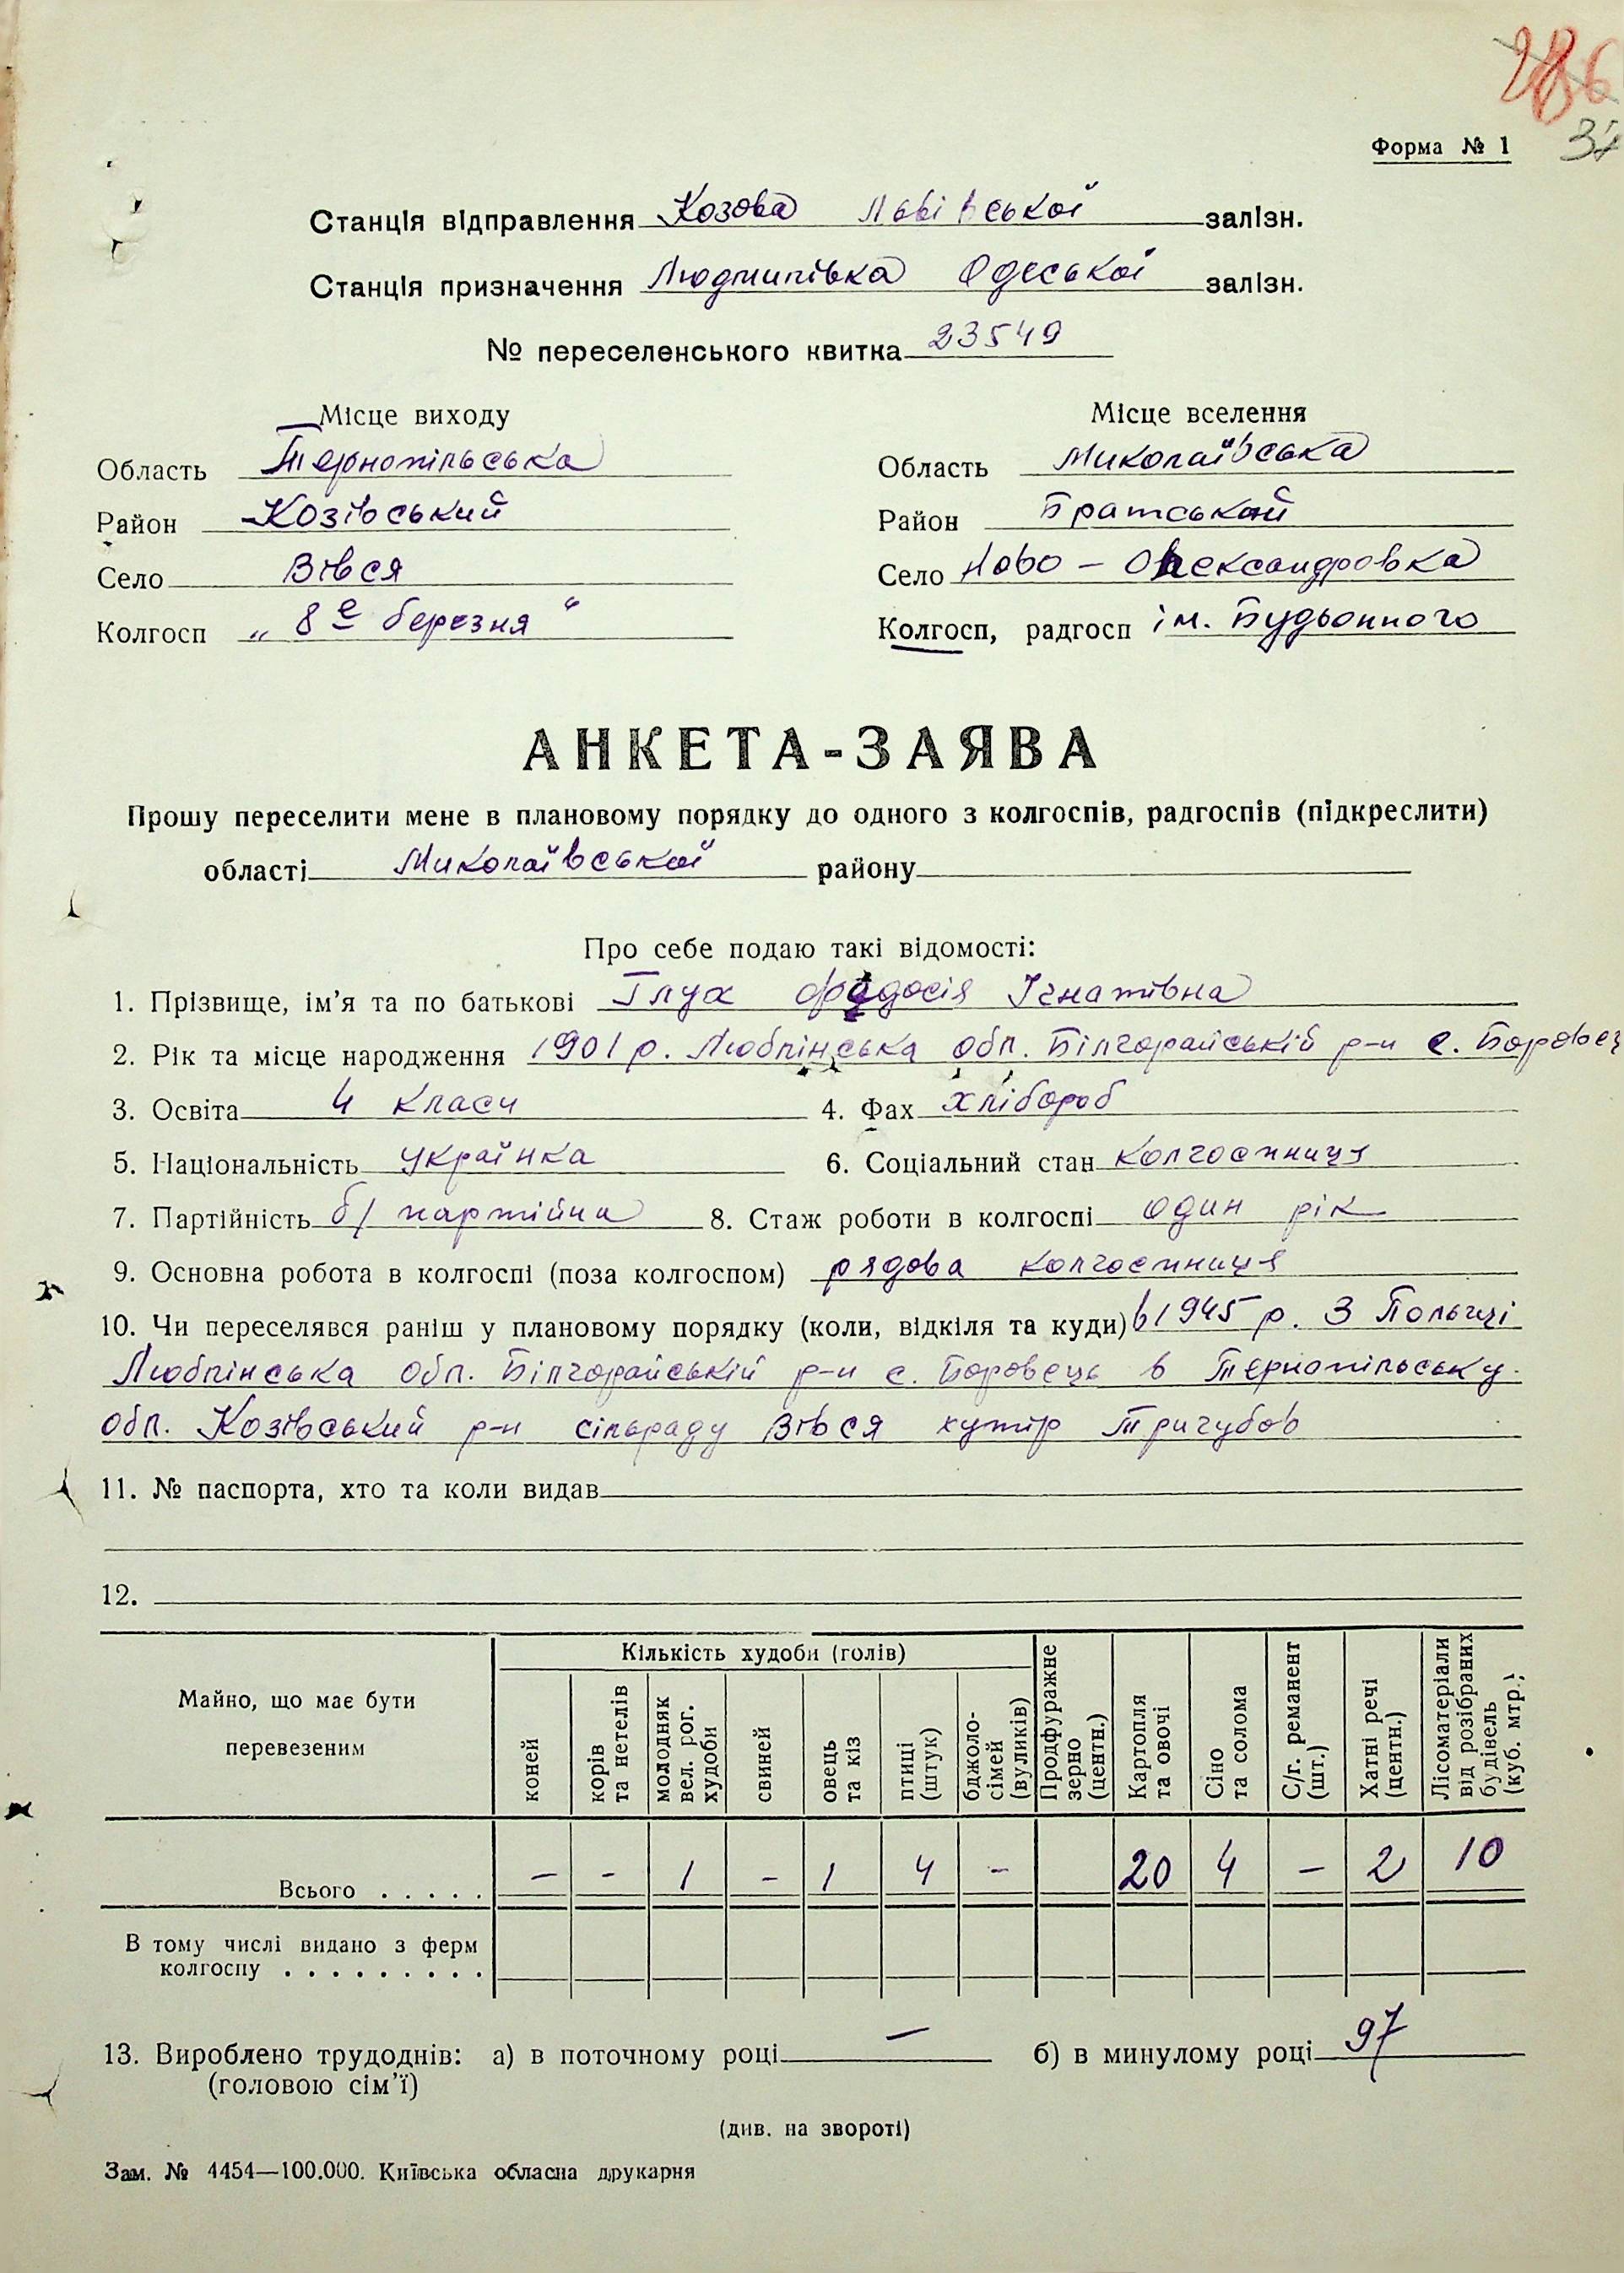 286
Форма № 1
Станція відправлення Козова Львівської залізн.
Станція призначення Людмилівка Одеської залізн.
№ переселенського квитка 23549
Місце виходу Місце вселення
Область Тернопільська Область Миколаївська
Район Козівський Район Братський
Село Вівся Село Ново-Олександровка
Колгосп „8е березня“ Колгосп, радгосп ім. Будьонного
АНКЕТА-ЗАЯВА
Прошу переселити мене в плановому порядку до одного з колгоспів, радгоспів (підкреслити)
області Миколаївської району
Про себе подаю такі відомості:
1. Прізвище, ім’я та по батькові Глух Федосія Ігнатівна
2. Рік та місце народження 1901 р. Люблінська обл. Білгорайській р-н с. Боровец
3. Освіта 4 класи 4. Фах хлібороб
5. Національність українка 6. Соціальний стан колгоспниця
7. Партійність б/партійна 8. Стаж роботи в колгоспі один рік
9. Основна робота в колгоспі (поза колгоспом) рядова колгоспниця
10. Чи переселявся раніш у плановому порядку (коли, відкіля та куди) в 1945 р. З Польщі
Люблінська обл. Білгорайській р-н с. Боровець в Тернопільську
обл. Козівський р-н сільраду Вівся хутір Тригубов
11. № паспорта, хто та коли видав
12.
Майно, що має бути перевезеним
Кількість худоби (голів)
коней
корів та нетелів
молодняк вел. рог. худоби
свиней
овець та кіз
птиці (штук)
бджоло-сімей (вуликів)
Продфуражне зерно (центн.)
Картопля та овочі
Сіно та солома
С/г. реманент (шт.)
Хатні речі (центн.)
Лісоматеріали від розібраних будівель (куб. мтр.)
Всього . . . . . – – 1 – 1 4 – 20 4 – 2 10
В тому числі видано з ферм
колгоспу . . . . . . . . .
13. Вироблено трудоднів: а) в поточному році — б) в минулому році 97
(головою сім’ї)
(див. на звороті)
Зам. № 4454—100.000. Київська обласна друкарня